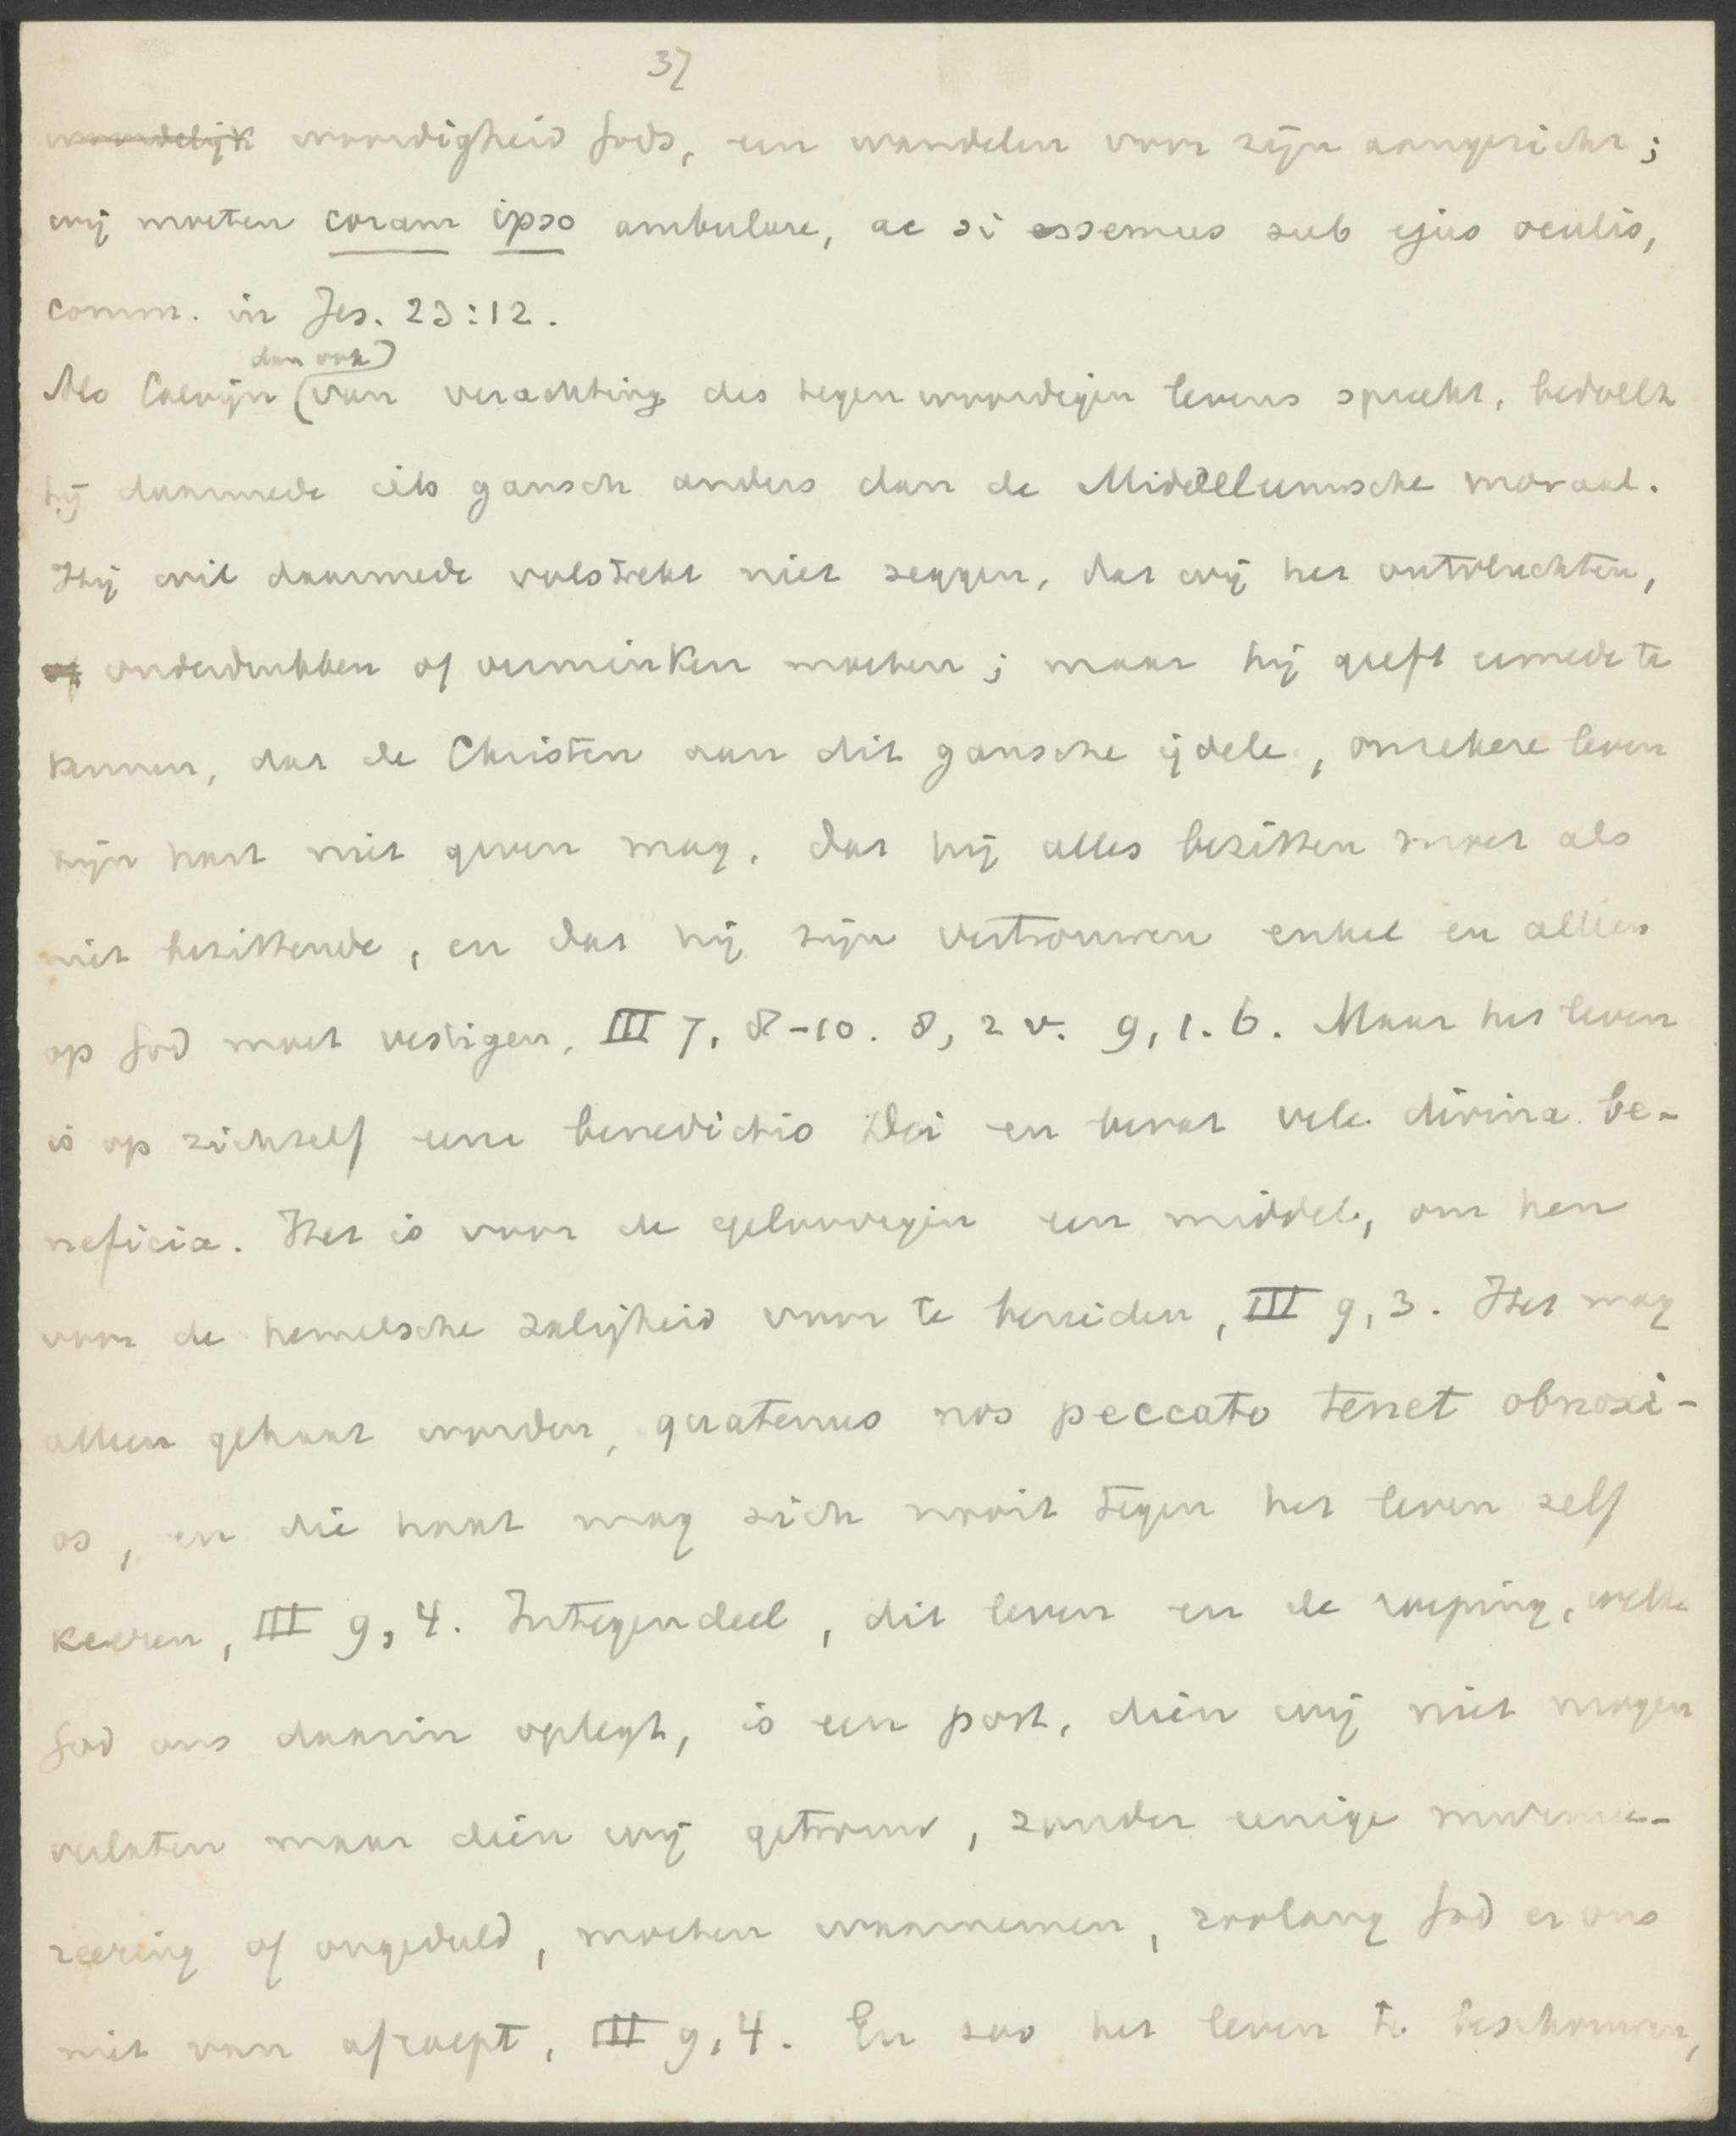 37
woordelijk woordigheid Gods, een wandelen voor zijn aangezicht;
wij moeten coram ipso ambulare, ac si essemus sub ejus oculis,
comm. in Jes. 23:12.
dan ook)
Als Calvijn (van verachting des tegenwoordigen levens spreekt, bedoelt
hij daarmede iets gansch anders dan de Middeleeuwsche moraal.
Hij wil daarmede volstrekt niet zeggen, dat wij het ontvluchten,
of onderdrukken of verminken moeten; maar hij geeft ermede te
kennen, dat de Christen aan dit gansche ijdele, onzekere leven
zijn hart niet geven mag, dat hij alles bezitten moet als
niet bezittende, en dat hij zijn vertrouwen enkel en alleen
op God moet vestigen, III 7, 8-10. 8, 2 v. 9, 1. 6. Maar het leven
is op zichzelf eene benedictio Dei en bevat vele divina be-
neficia. Het is voor de geloovigen een middel, om hen
voor de hemelsche zaligheid voor te bereiden, III 9, 3. Het mag
alleen gehaat worden, quatenus nos peccato tenet obnoxi-
os, en die haat mag zich nooit tegen het leven zelf
keeren, III 9, 4. Integendeel, dit leven en de roeping, welke
God ons daarin oplegt, is een post, dien wij niet mogen
verlaten maar dien wij getrouw, zonder eenige murmu-
reering of ongeduld, moeten waarnemen, zoolang God er ons
niet van afroept, III 9, 4. En zoo het leven te beschouwen,